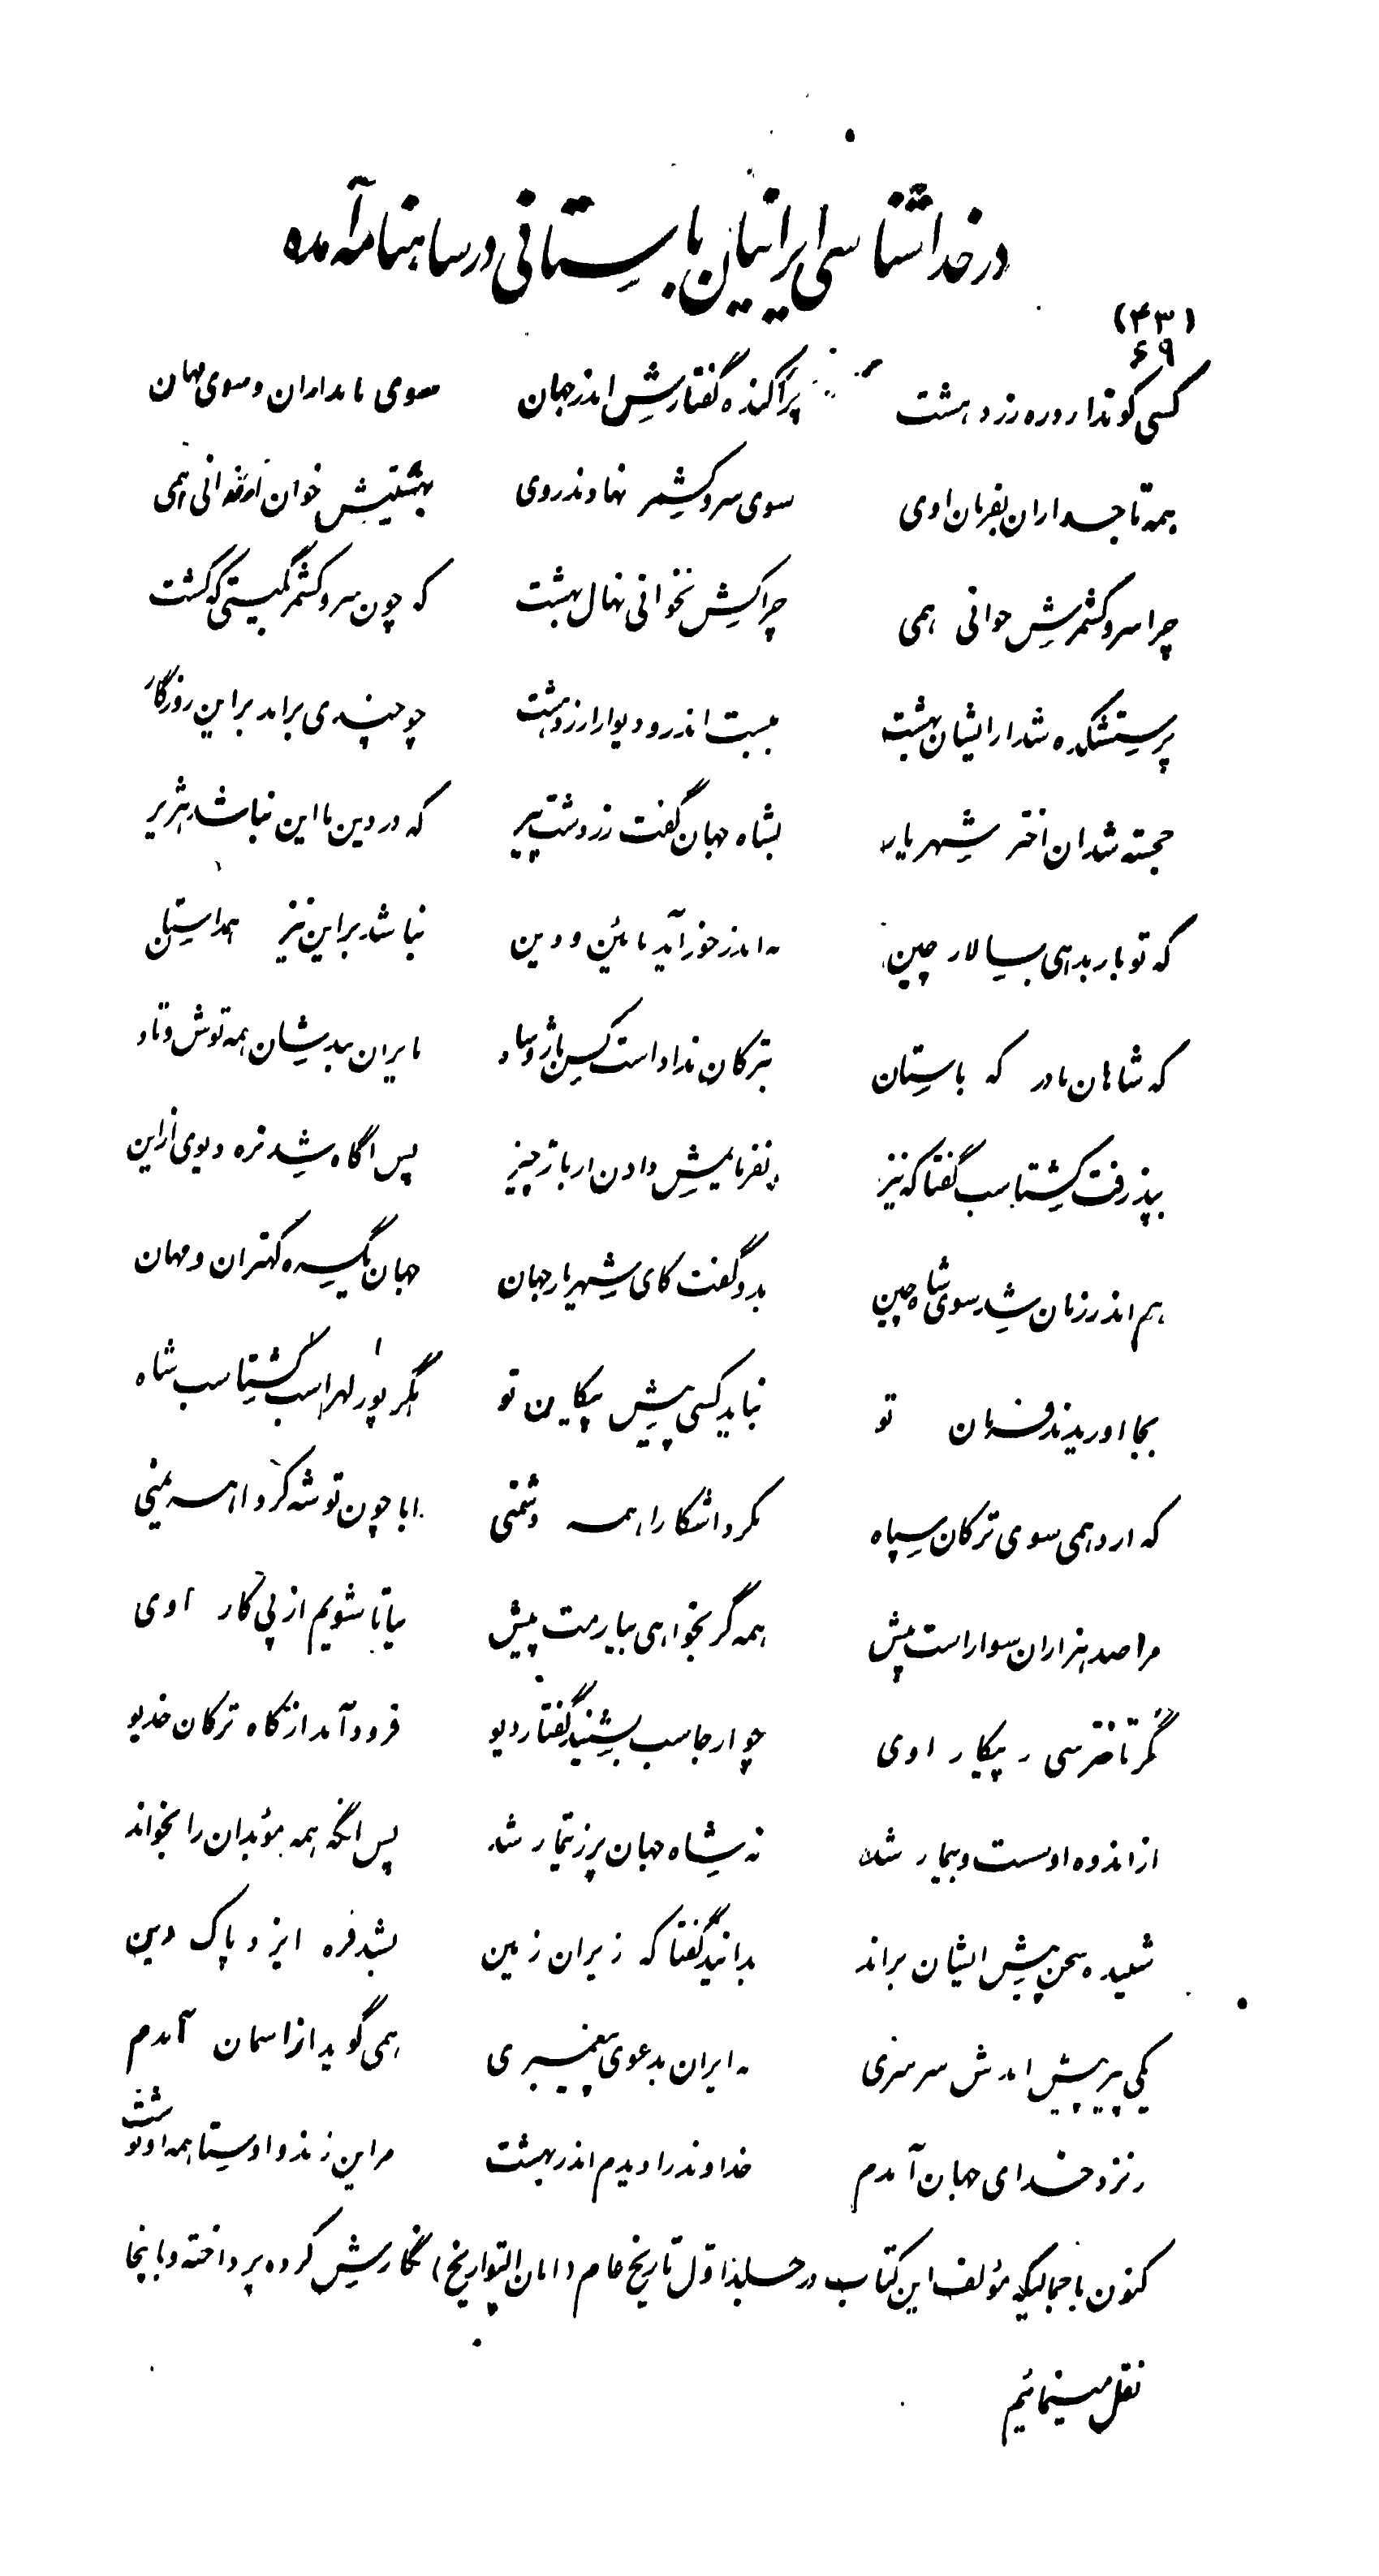 در خداشناسی ایرانیان باستانی در ساهنامه آمده
(۴۳)
۶۹
کسی کو ندارد ره زردهشت پراکنده گفتارش اندر جهان سوی نامداران و سوی مهان
همه تاجداران بفرمان اوی سوی سرو کشمر نهادند روی بهشتیش خوان ار ندانی همی
چرا سرو کشمرش خوانی همی چرا کش نخوانی نهال بهشت که چون سرو کشمر بگیتی که کشت
پرستشکده شد از ایشان بهشت ببست اندرو دیو را زردهشت چو چندی برامد براین روزگار
خجسته شد ان اختر شهریار بشاه جهان گفت زردشت پیر که در دین ما این نباشد هژیر
که تو باژ بدهی بسالار چین نه اندر خور آید بائین و دین نباشد براین نیز همداستان
که شاهان ما در که باستان بترکان نداداست کس باژ و ساو بایران بدیشان همه توش و تاو
بپذرفت گشتاسب گفتا که نیز نفرمایمش دادن از باژ چیز پس اگاه شد نره دیوی ازاین
هم اندر زمان شد سوی شاه چین بدو گفت کای شهریار جهان جهان یکسره کهتران و مهان
بجا اوریدند فرمان تو نیاید کسی پیش پیکان تو مگر پور لهراسب گشتاسب شاه
که ارد همی سوی ترکان سپاه بکرد اشکارا همه دشمنی ابا چون تو شه کرد اهریمنی
مرا صد هزاران سوار است بیش همه گر بخواهی بیارمت پیش بیا تا شویم از پی کار اوی
نگر تا نترسی ز پیکار اوی چو ارجاسب بشنید گفتار دیو فرود آمد از گاه ترکان خدیو
از اندوه او سست و بیمار شد ز شاه جهان پر ز تیمار شد پس انگه همه موبدان را بخواند
شنیده سخن پیش ایشان براند بدانید گفتا که ز ایران زمین بشد فره ایزد و پاک دین
یکی پیر پیش امدش سرسری به ایران بدعوی پیغمبری همی گوید از اسمان آمدم
ز نزد خدای جهان آمدم خداوند را دیدم اندر بهشت مر این زند و اوستا همه او نوشت
کنون با جمالیکه مؤلف این کتاب در جلد اوّل تاریخ عام (امان التواریخ) نگارش کرده پرداخته و باینجا
نقل مینمائیم